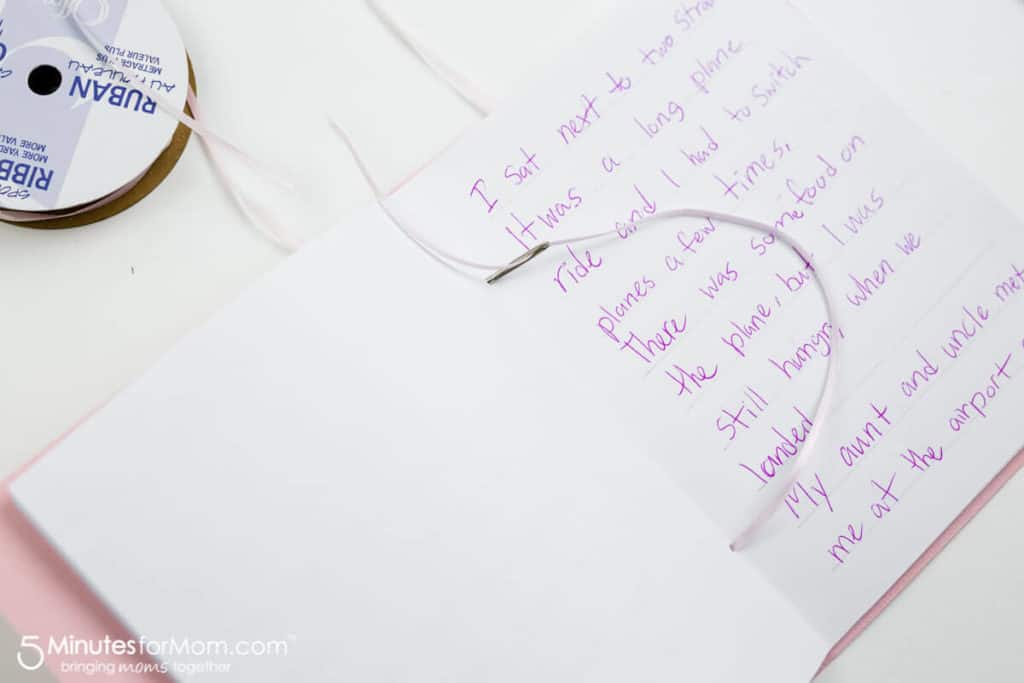 I sat next to two
It was a long plane
ride and I had to switch
planes a few times.
There was some food on
the plane, but I was
still hungry when we
landed
My aunt and uncle met
me at the airport
RUBAN
METRAGE PLUS
VALEUR PLUS
MORE YARD
MORE VAL
RIBB
SPO
5MinutesforMom.com
bringing moms together